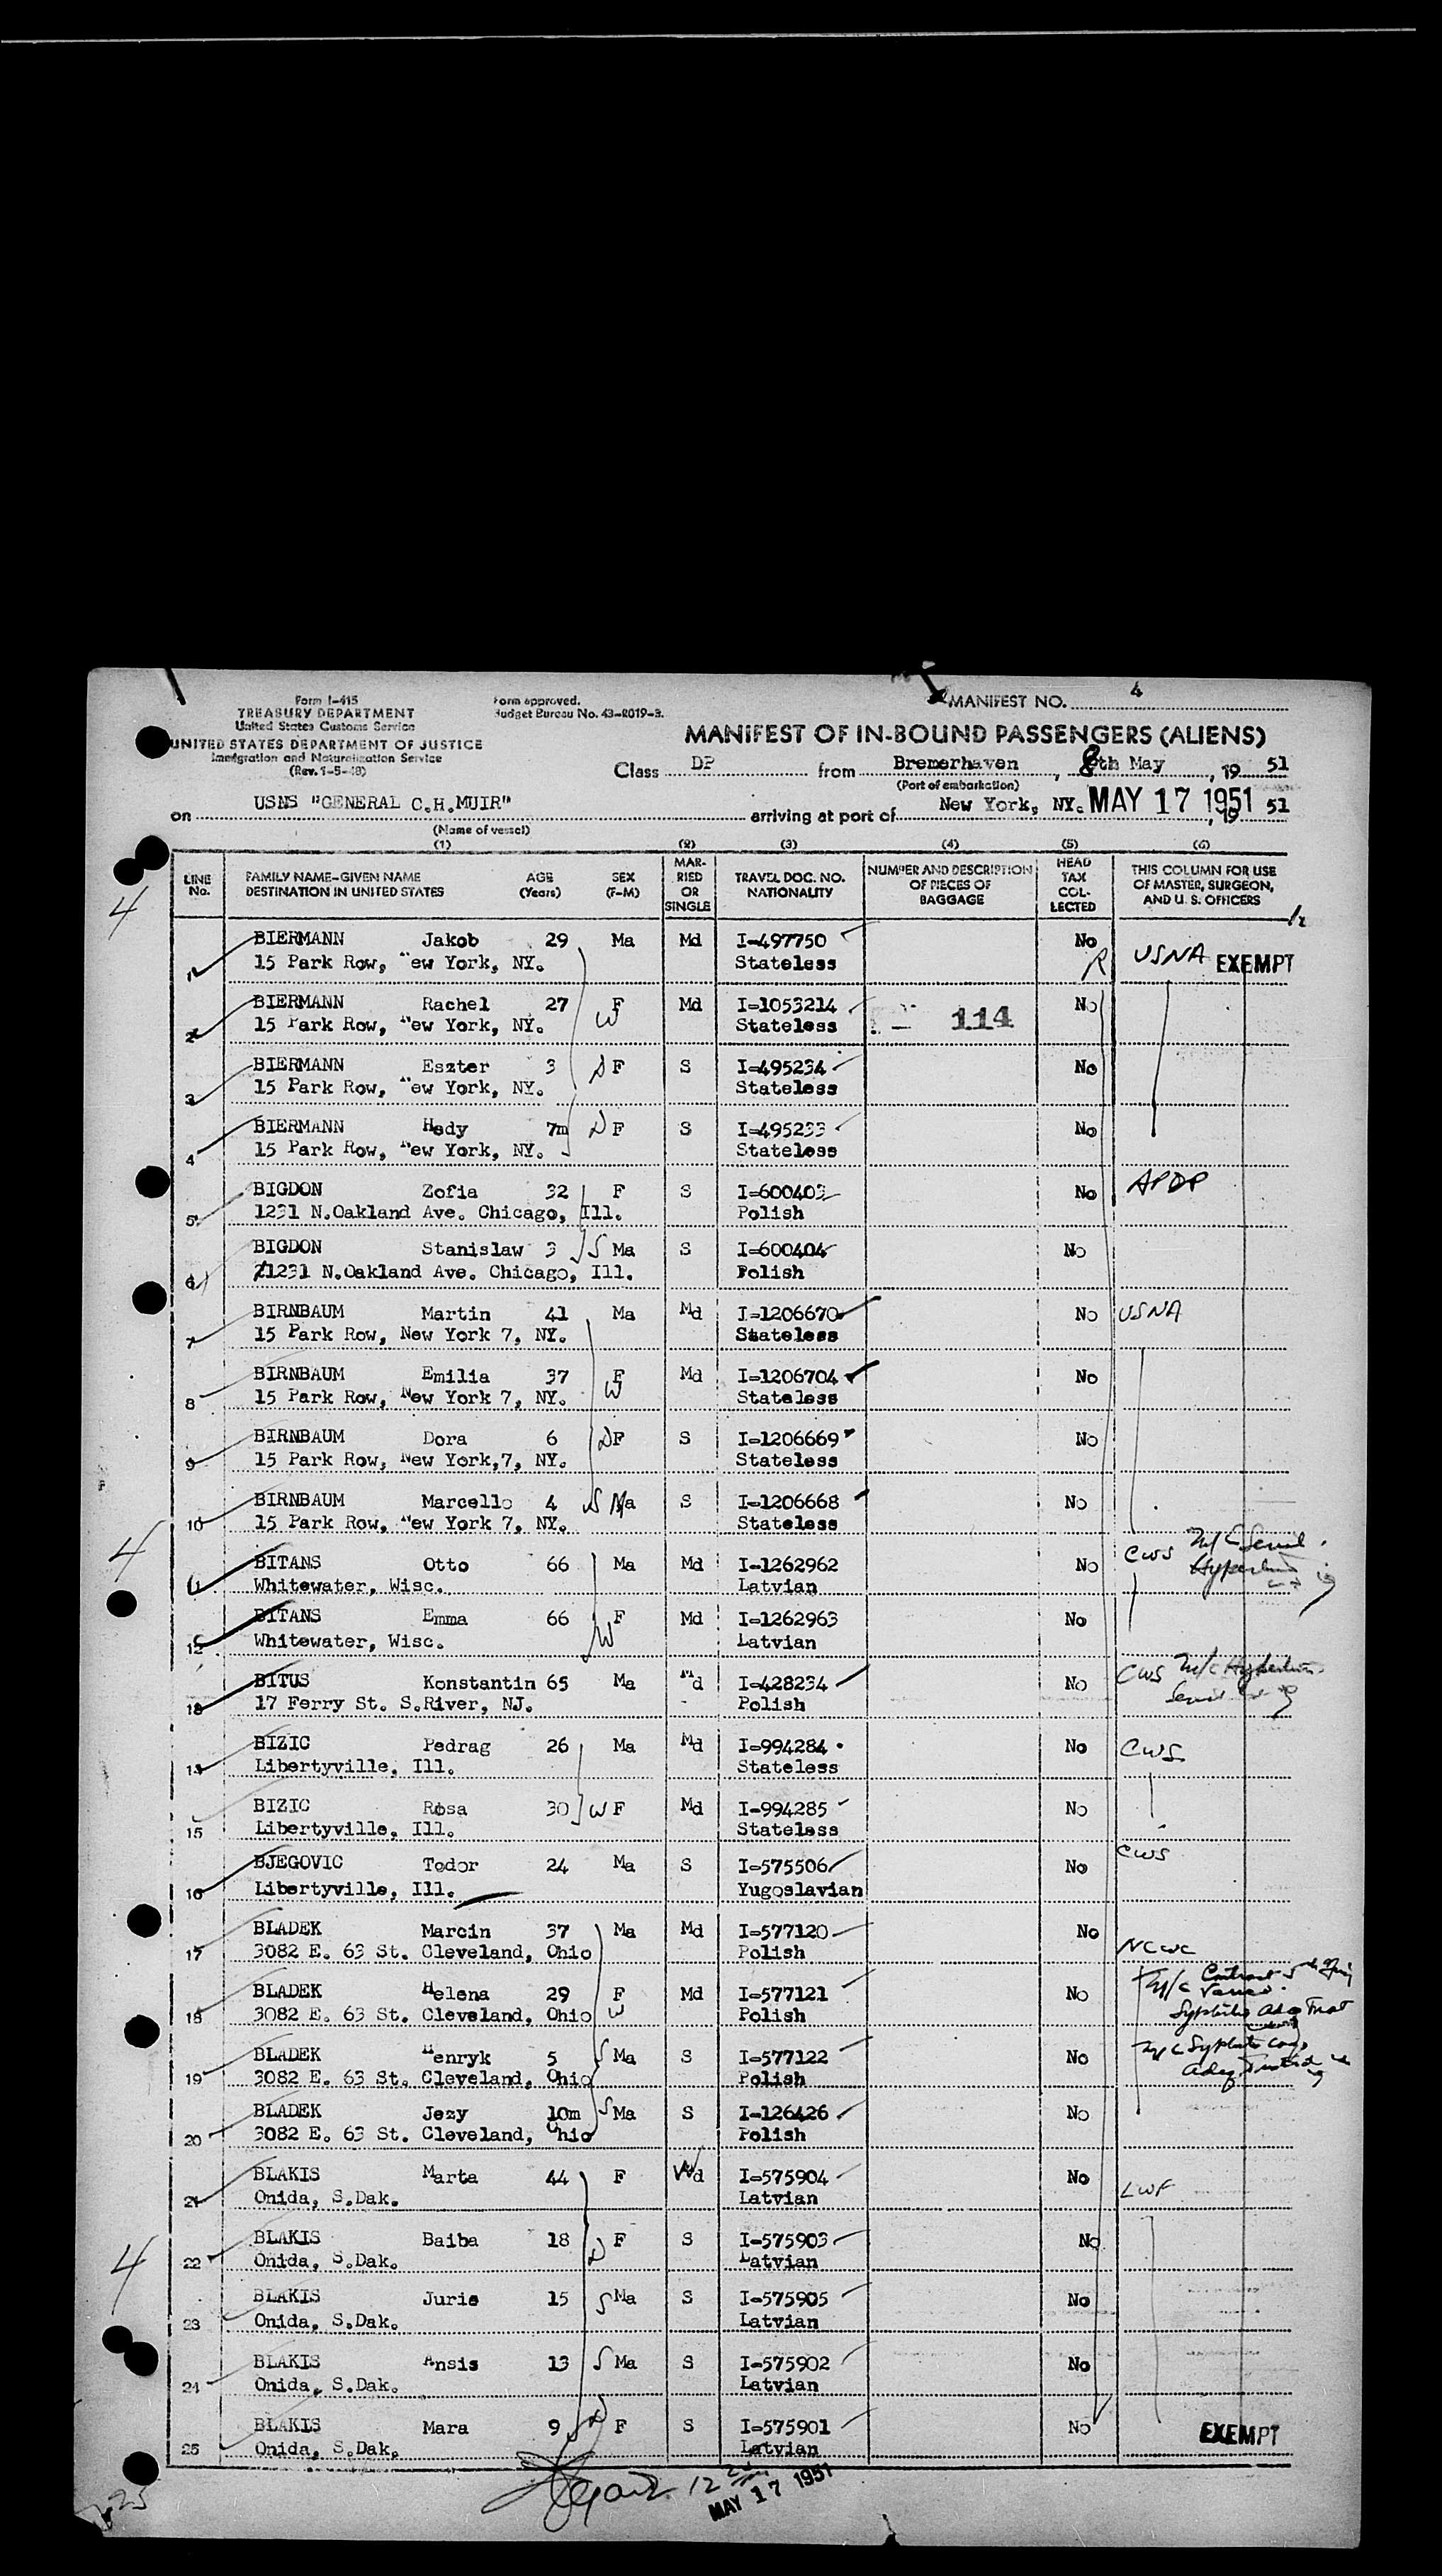 Form I-415
TREASURY DEPARTMENT
United States Customs Service
UNITED STATES DEPARTMENT OF JUSTICE
Immigration and Naturalization Service
(Rev. 1-5-48)
Form approved.
Budget Bureau No. 43-R019-3.
MANIFEST NO. 4
MANIFEST OF IN-BOUND PASSENGERS (ALIENS)
Class DP from Bremerhaven, 8th May, 19 51
(Port of embarkation)
on USNS "GENERAL C.H.MUIR" arriving at port of New York, NY. MAY 17 1951, 19 51
(Name of vessel)
(1) (2) (3) (4) (5) (6)
LINE No. FAMILY NAME-GIVEN NAME DESTINATION IN UNITED STATES AGE (Years) SEX (F-M) MARRIED OR SINGLE TRAVEL DOC. NO. NATIONALITY NUMBER AND DESCRIPTION OF PIECES OF BAGGAGE HEAD TAX COLLECTED THIS COLUMN FOR USE OF MASTER, SURGEON, AND U. S. OFFICERS
4
1 BIERMANN Jakob 29 Ma Md I-497750 No
15 Park Row, New York, NY. Stateless R USNA EXEMPT
2 BIERMANN Rachel 27 F Md I-1053214 No
15 Park Row, New York, NY. W Stateless 114
3 BIERMANN Eszter 3 D F S I-495234 No
15 Park Row, New York, NY. Stateless
4 BIERMANN Hedy 7m D F S I-495233 No
15 Park Row, New York, NY. Stateless
5 BIGDON Zofia 32 F S I-600403 No APDP
1231 N.Oakland Ave. Chicago, Ill. Polish
6 BIGDON Stanislaw 3 S Ma S I-600404 No
1231 N.Oakland Ave. Chicago, Ill. Polish
7 BIRNBAUM Martin 41 Ma Md I-1206670 No USNA
15 Park Row, New York 7, NY. Stateless
8 BIRNBAUM Emilia 37 F Md I-1206704 No
15 Park Row, New York 7, NY. W Stateless
9 BIRNBAUM Dora 6 D F S I-1206669 No
15 Park Row, New York,7, NY. Stateless
10 BIRNBAUM Marcello 4 S Ma S I-1206668 No
15 Park Row, New York 7, NY. Stateless
4
11 BITANS Otto 66 Ma Md I-1262962 No CWS
Whitewater, Wisc. Latvian
12 BITANS Emma 66 F Md I-1262963 No
Whitewater, Wisc. W Latvian
13 BITUS Konstantin 65 Ma Md I-428234 No CWS
17 Ferry St. S.River, NJ. Polish
14 BIZIC Pedrag 26 Ma Md I-994284 No CWS
Libertyville, Ill. Stateless
15 BIZIC Rosa 30 W F Md I-994285 No
Libertyville, Ill. Stateless
16 BJEGOVIC Todor 24 Ma S I-575506 No CWS
Libertyville, Ill. Yugoslavian
17 BLADEK Marcin 37 Ma Md I-577120 No
3082 E. 63 St. Cleveland, Ohio Polish NCWC
18 BLADEK Helena 29 F Md I-577121 No
3082 E. 63 St. Cleveland, Ohio W Polish
19 BLADEK Henryk 5 S Ma S I-577122 No
3082 E. 63 St. Cleveland, Ohio Polish
20 BLADEK Jezy 10m S Ma S I-126426 No
3082 E. 63 St. Cleveland, Ohio Polish
21 BLAKIS Marta 44 F Wd I-575904 No LWF
Onida, S.Dak. Latvian
4
22 BLAKIS Baiba 18 D F S I-575903 No
Onida, S.Dak. Latvian
23 BLAKIS Juris 15 S Ma S I-575905 No
Onida, S.Dak. Latvian
24 BLAKIS Ansis 13 S Ma S I-575902 No
Onida, S.Dak. Latvian
25 BLAKIS Mara 9 D F S I-575901 No EXEMPT
Onida, S.Dak. Latvian
25
MAY 17 1951